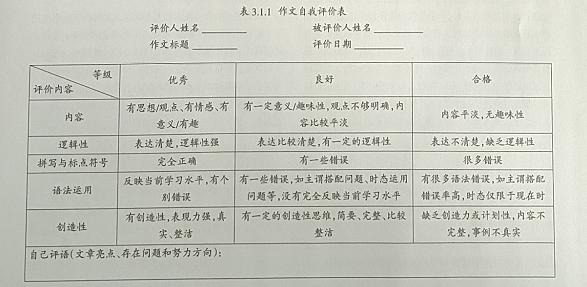 表 3.1.1 作文自我评价表
评价人姓名________ 被评价人姓名________
作文标题________ 评价日期________
等级
评价内容
优秀 良好 合格
内容
有思想/观点、有情感、有
意义/有趣
有一定意义/趣味性,观点不够明确,内
容比较平淡
内容平淡,无趣味性
逻辑性 表达清楚,逻辑性强 表达比较清楚,有一定的逻辑性 表达不清楚,缺乏逻辑性
拼写与标点符号 完全正确 有一些错误 很多错误
语法运用
反映当前学习水平,有个
别错误
有一些错误,如主谓搭配问题、时态运用
问题等,没有完全反映当前学习水平
有很多语法错误,如主谓搭配
错误率高,时态仅限于现在时
创造性
有创造性,表现力强,真
实、整洁
有一定的创造性思维,简要、完整、比较
整洁
缺乏创造力或计划性,内容不
完整,事例不真实
自己评语(文章亮点、存在问题和努力方向):